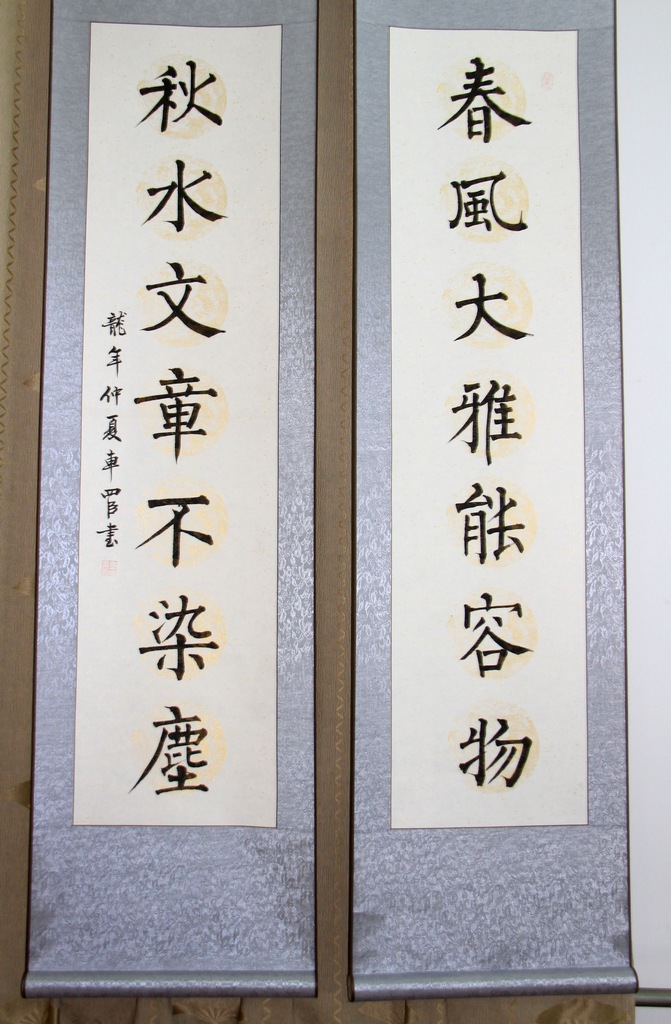 春風大雅能容物
秋水文章不染塵
龍年仲夏車四臣書